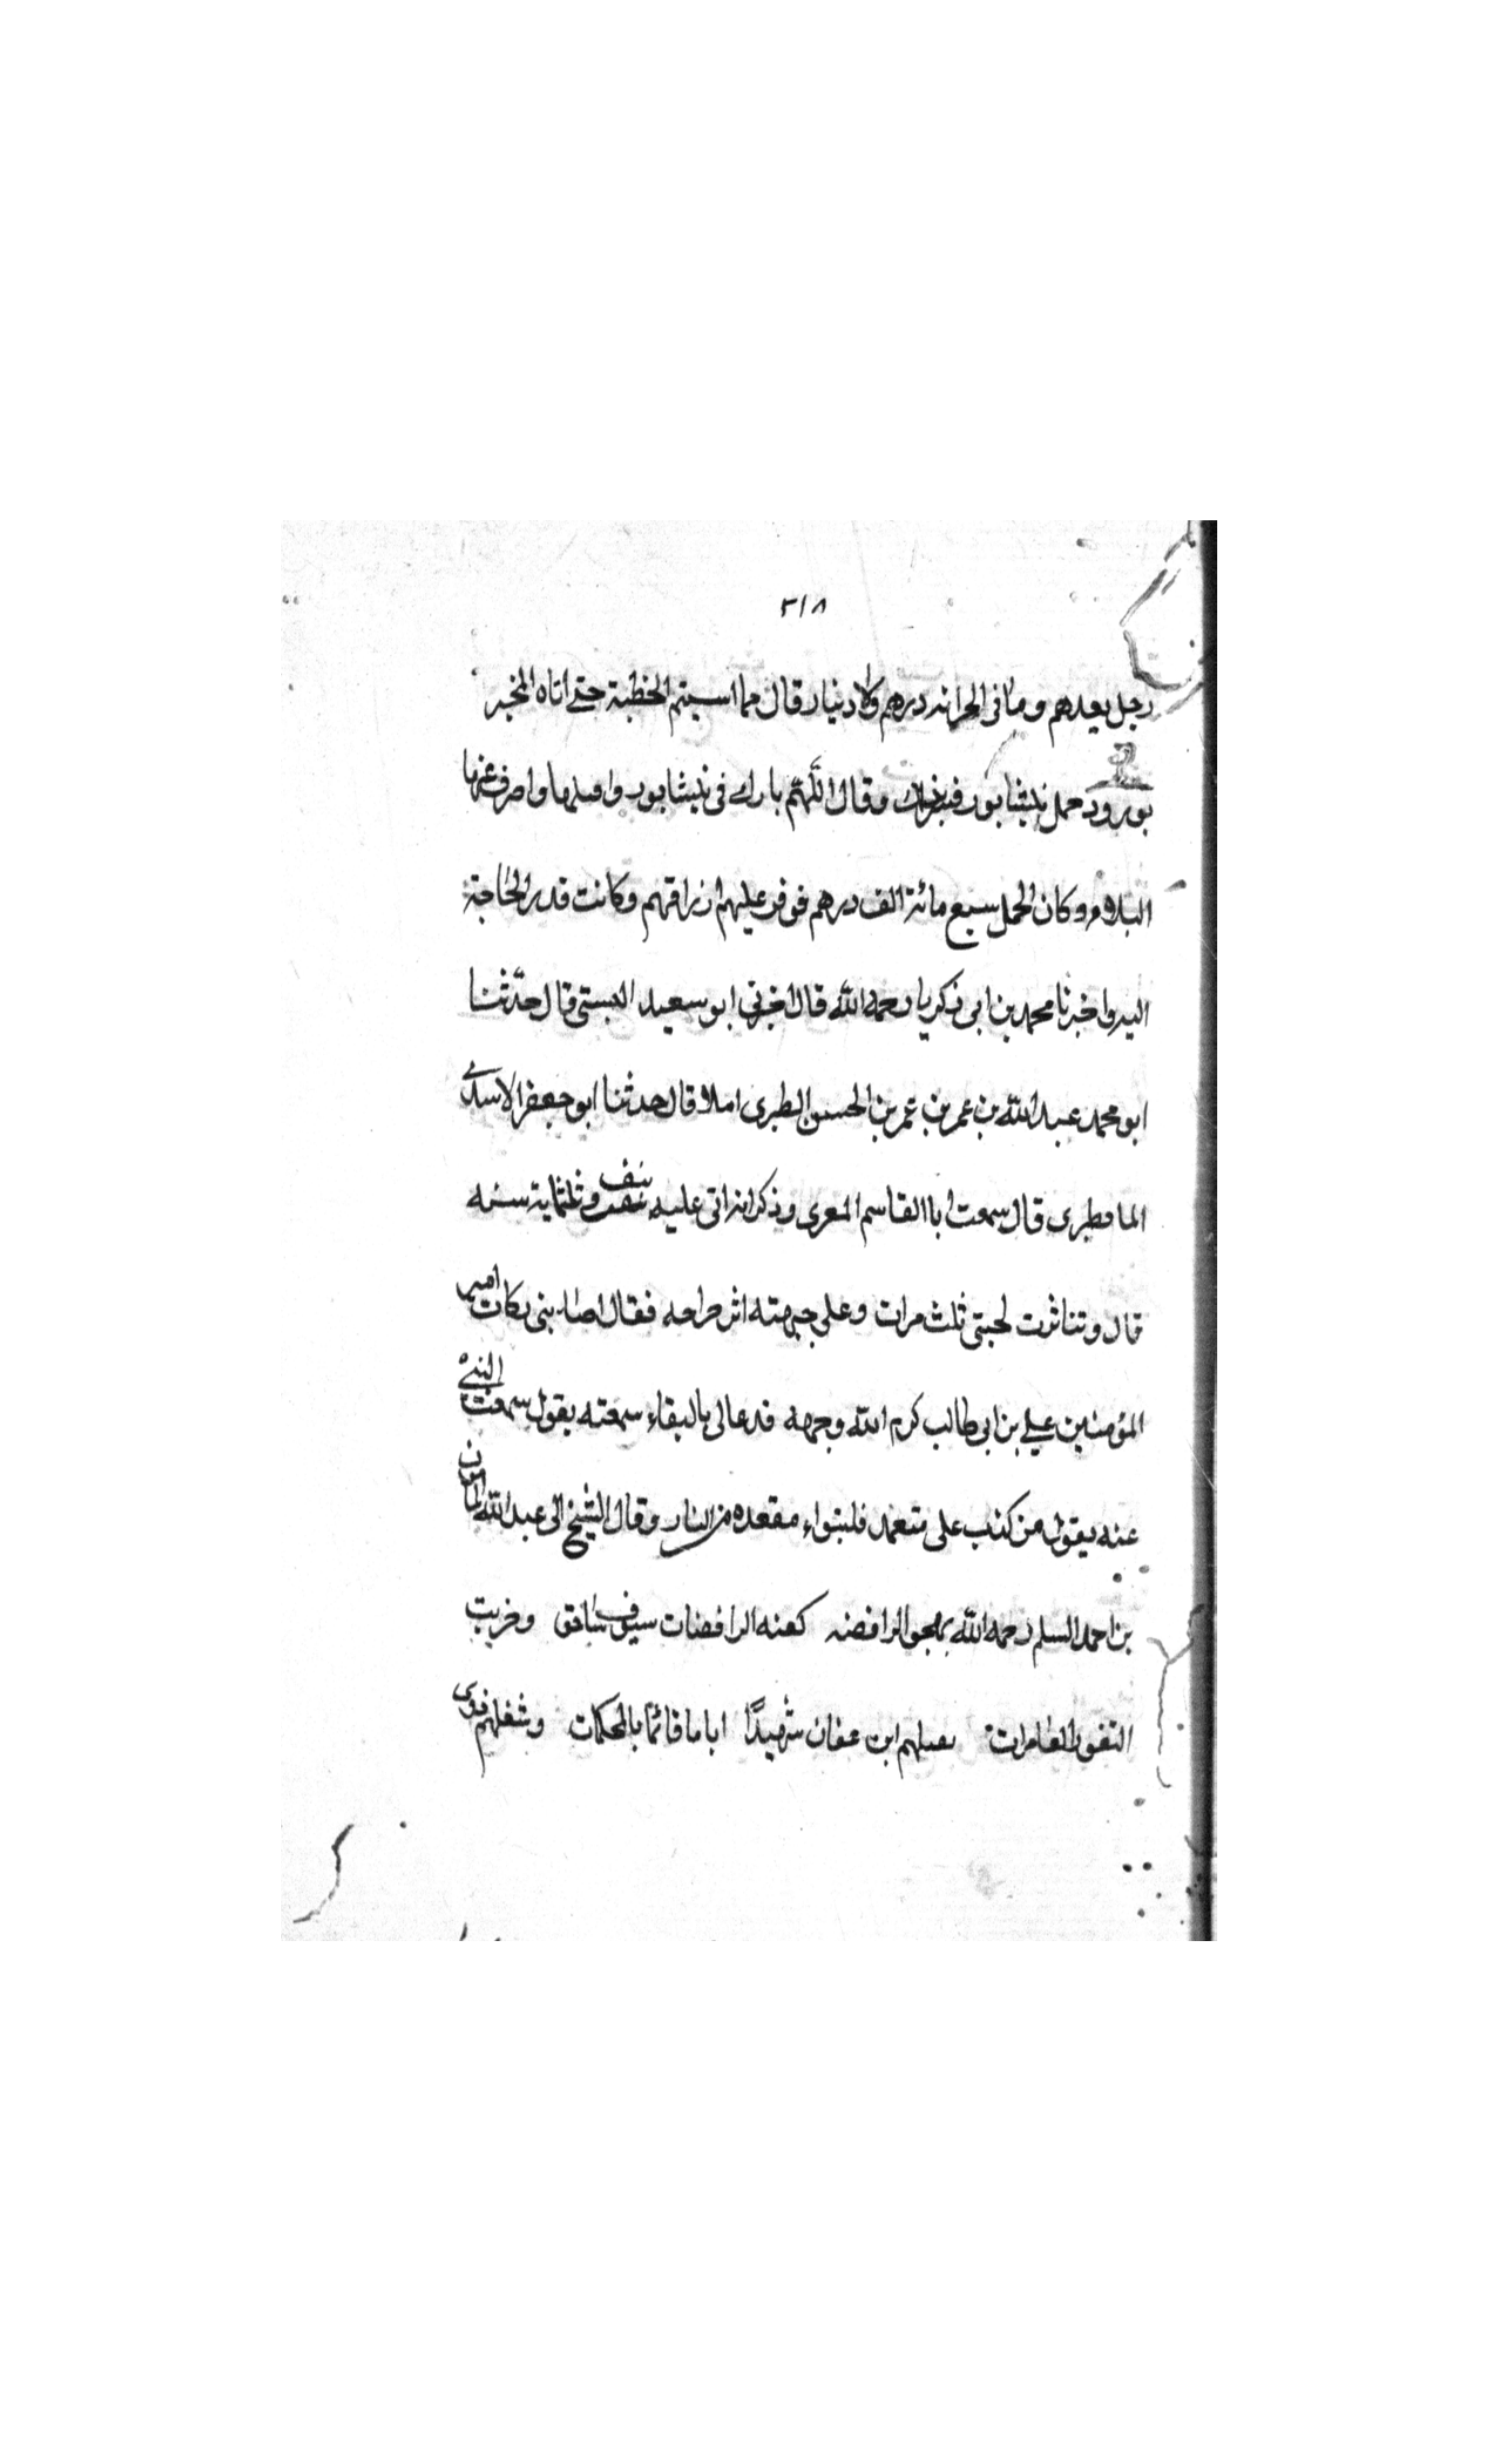 ٣١٨
رجل يعدهم وما فى الخزانه درهم ولا دنيار قال مما استتم الخطبة حتى اتاه المخبر
بورود حمل نيشابور وقال اللهم بارك فى نيشابور واهلها واصرف عنها
البلاء وكان الحمل سبع مائة الف درهم فوفر عليهم ارزاقهم وكانت قدر الحاجة
اليه واخبرنا محمد بن ابى زكريا رحمه الله قال اخبرنى ابو سعيد البستى قال حدثنا
ابو محمد عبد الله بن عمر بن عمر بن الحسن الطبرى املا قال حدثنا ابو جعفر الاسدى
المامطرى قال سمعت ابا القاسم المعرى وذكر انه اتى عليه نيف وثلثماية سنه
قال وتناثرت لحيتى ثلث مرات وعلى جبهته اثر جراحه فقال ركاب امير
المؤمنين على بن ابى طالب كرم الله وجهه فدعا لى بالبقاء سمعته يقول سمعت النبى
عنه يقول من كذب على متعمد فليتبواء مقعده من النار وقال الشيخ ابى عبد الله المامون
بن احمد السلم رحمه الله يهجو الرافضه كعنه الرافضات سيوف وخربت
الثغور العامرات ابن عفان شهيدًا اماما قائما بالمحكمات وشغلهم